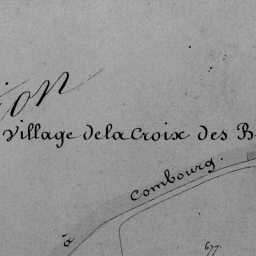 ion
Village de la Croix des B
à Combourg.
677